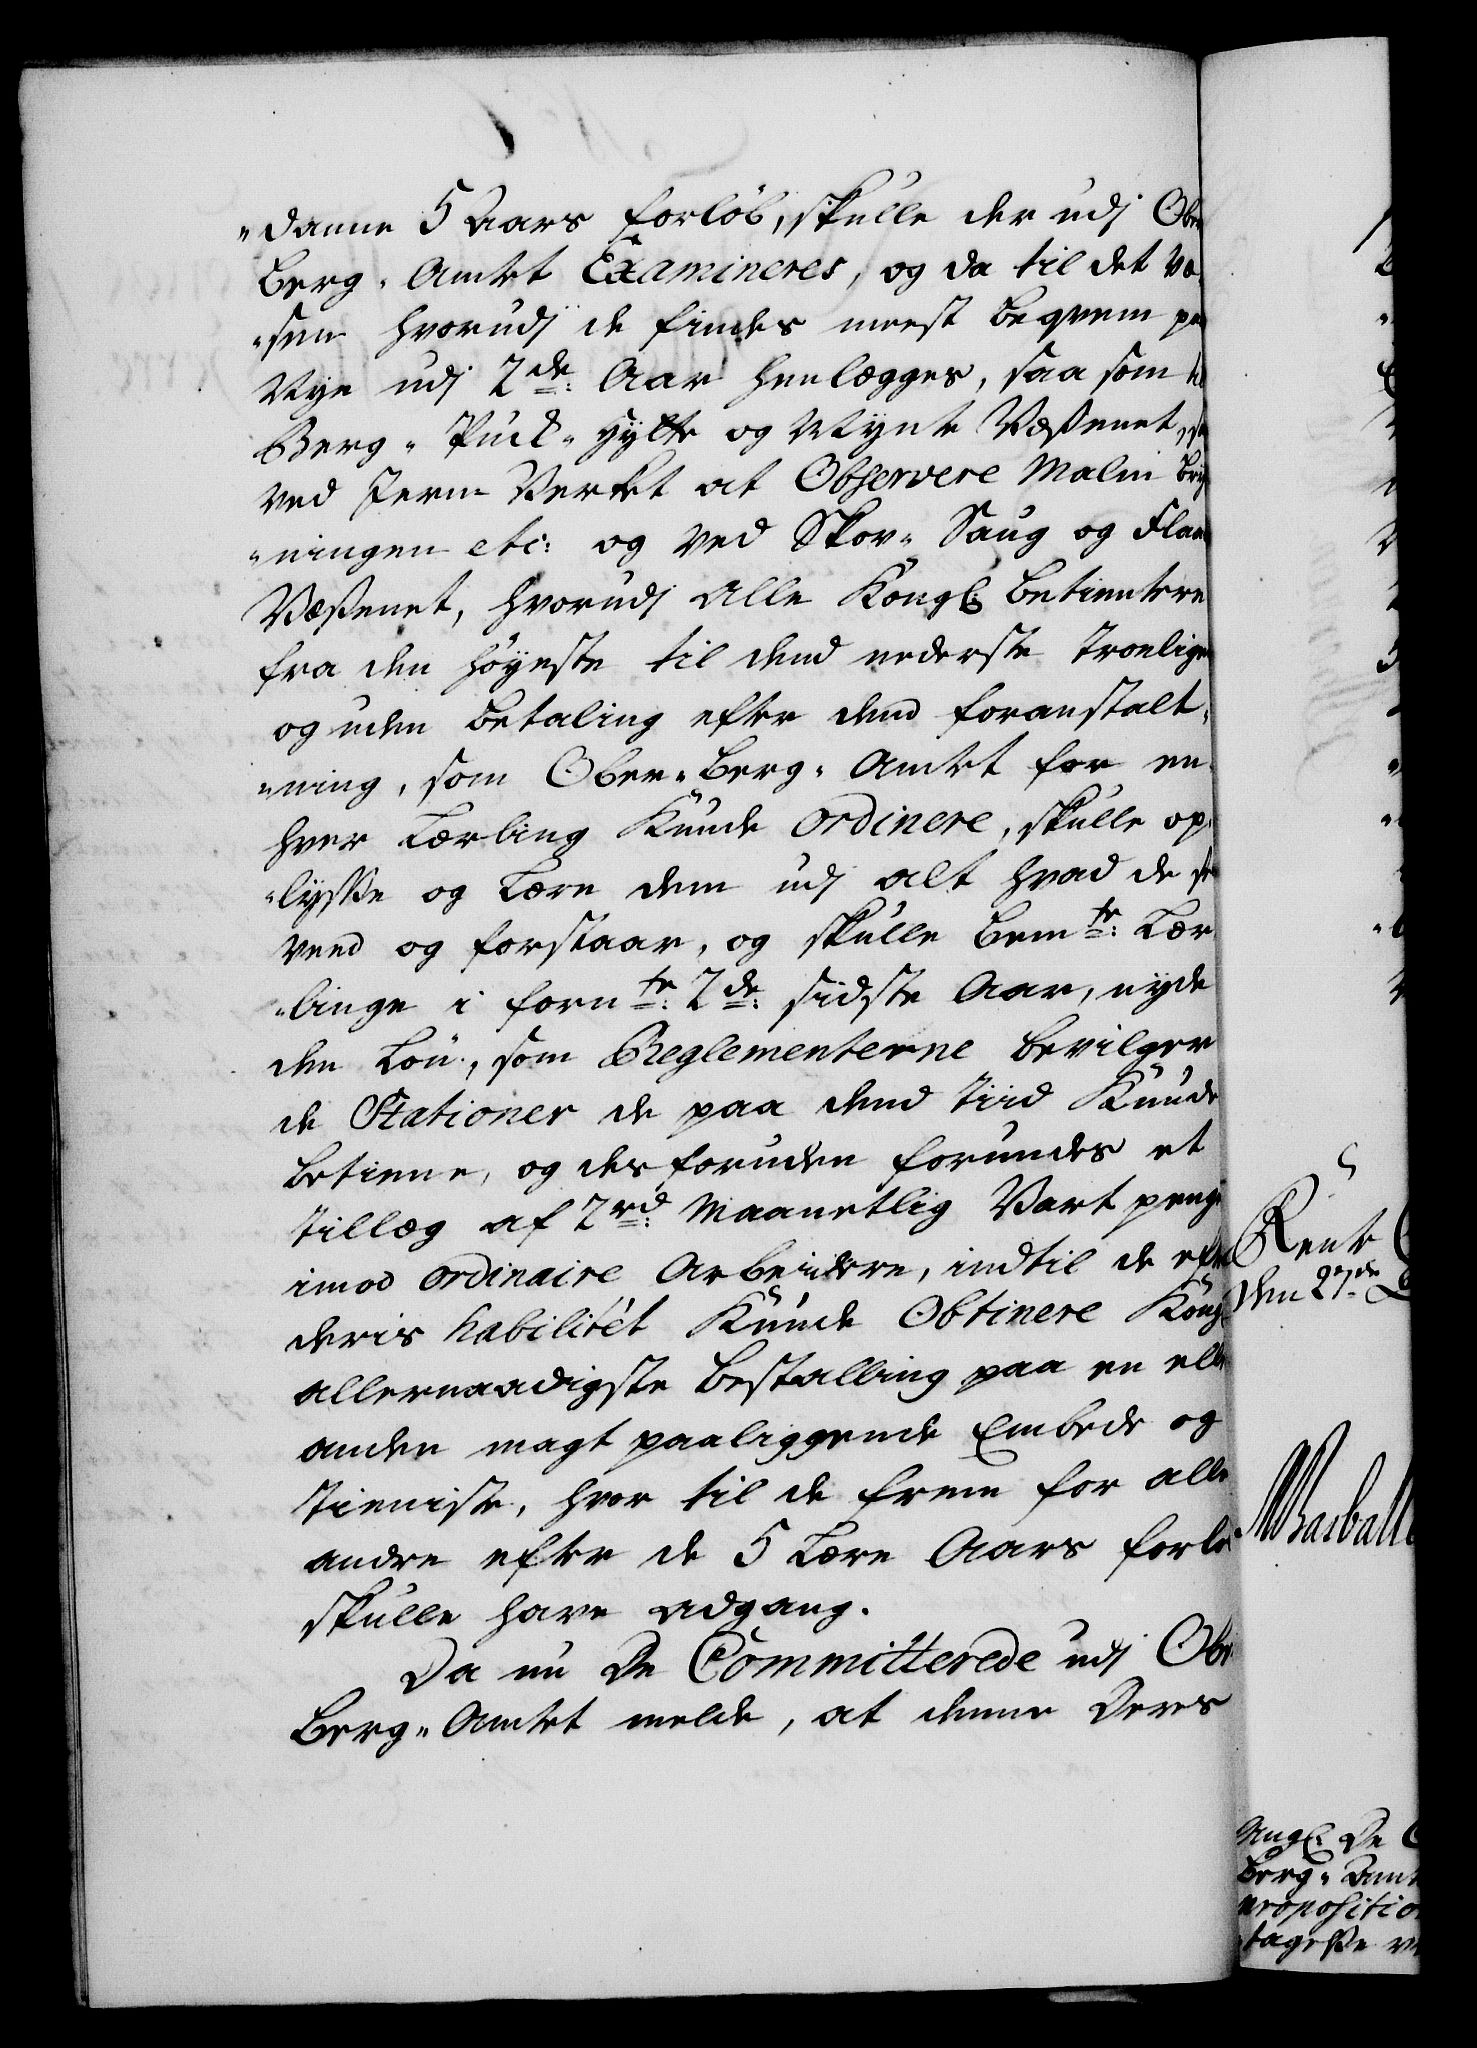 "danne 5 Aars forløb, skulle der udj Ober
Berg-Amtet Examineres, og da til det Væ-
"sen hvorudj de findes meest beqvem paa
Nye udj 2de: Aar henlægges, saa som til
Berg- Puck- Hytte og Mynte Væsenet,
ved Jern Verket at Observere Malm Bry
"ningen etc: og ved Skov- Saug og Flaad
Væsenet, hvorudj alle Kongl: betientere
fra den høyeste til dend nederste Troelige
og uden betaling efter dend foranstalt-
"ning, som Ober-Berg-Amtet for en-
hver Lærling kunde ordinere, skulle op-
"lysse og Lære dem udj alt hvad de self
veed og forstaar, og skulle bemte: Lær-
"linge i fornte: 2de: sidste Aar, nyde
den Løn, som Reglementerne bevilger
de Stationer de paa dend Tiid kunde
betiene, og desforuden forundes et
Tillæg af 2rd: Maanetlig Vart penge
imod ordinaire Arbeidere, indtil de efter
deris habilitét kunde Obtinere Kongl
allernaadigste bestalling paa en eller
anden magt paaliggende Embede og
Tieniste, hvor til de frem for alle
andre efter de 5 Lære Aars forlø
skulle have adgang.
Da nu De Committerede udj Ober
Berg-Amtet melde, at denne Deres
Rente
den 27de
Angl: De
Berg-Amt
propositio
tagelse